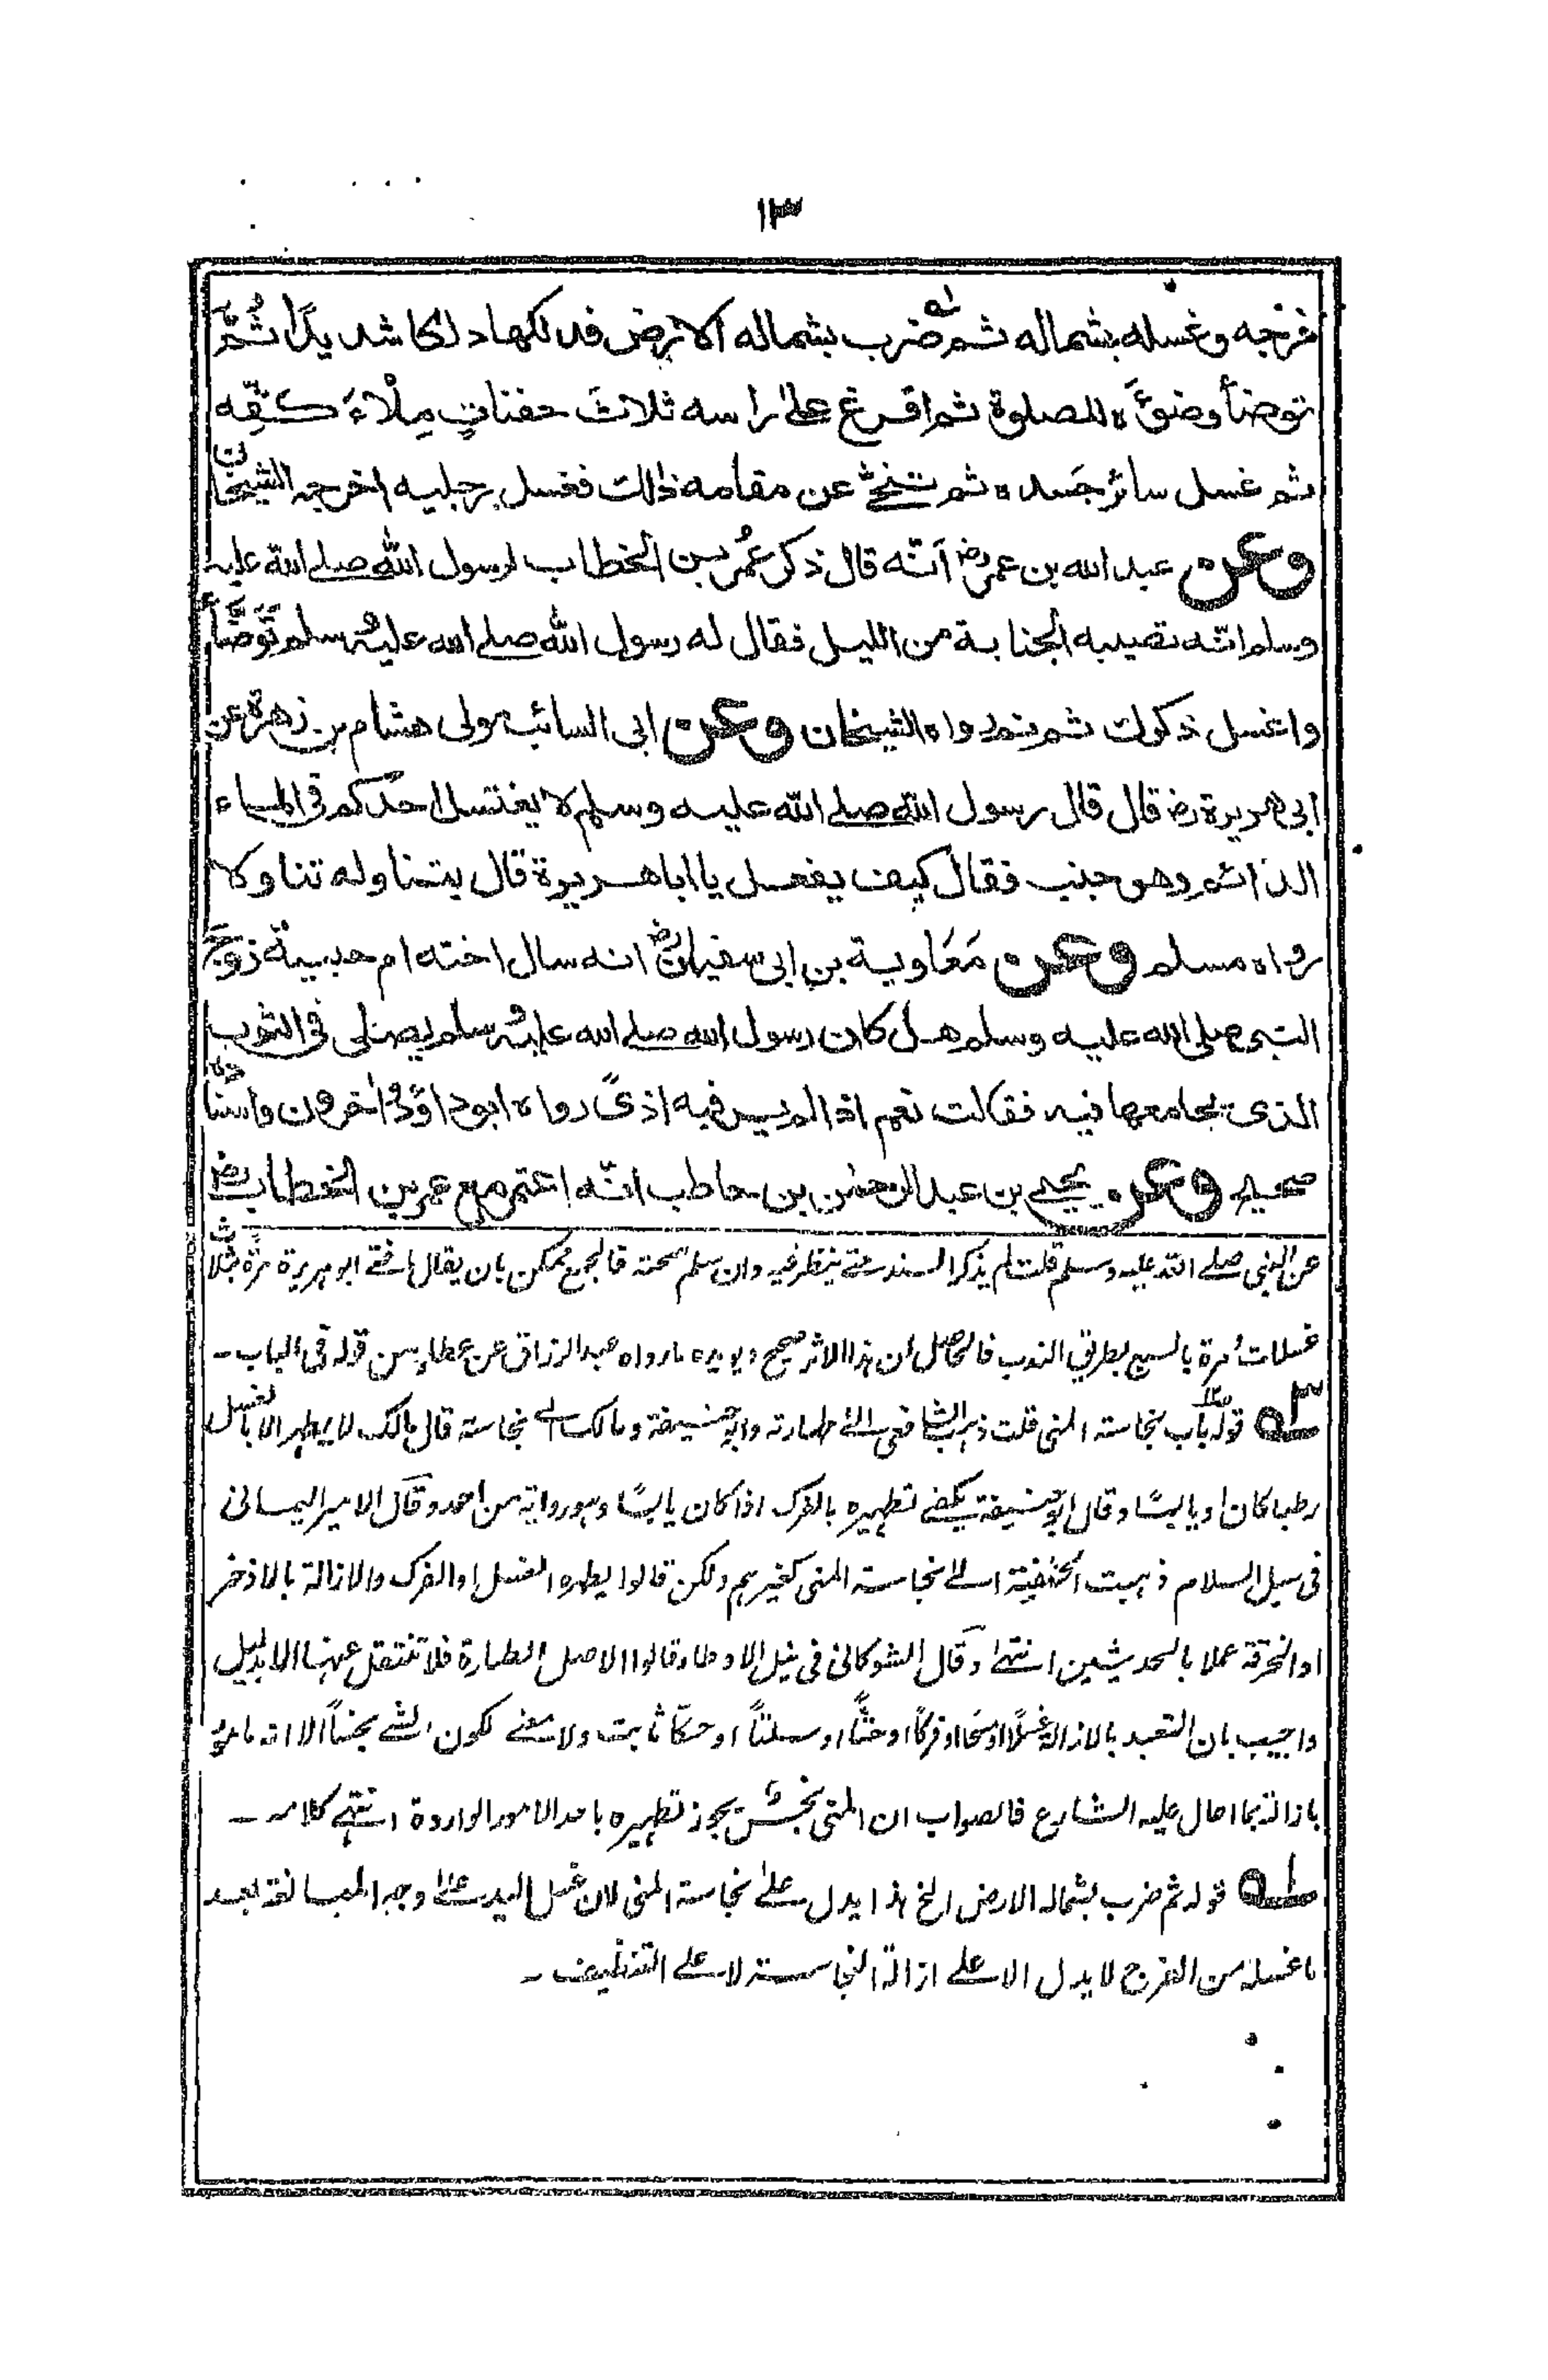 ١٣
فرجه وغسله بشماله ثم ضرب بشماله الارض فدلكها دلكا شديدًا ثُمَّ
توضأ وضوءَه للصلوة ثم افرغ على راسه ثلاثَ حفناتٍ مِلْاءَ كفِّه
ثم غسل سائر جَسده ثم تنحّٰى عن مقامه ذالك فغسل رجليه اخرجه الشيخان
وعن عبد الله بن عمر رض اَنّه قال ذكر عُمر بن الخطاب لرسول الله صلے الله عليه
وسلم انّه تصيبه الجنابة من الليل فقال له رسول الله صلے الله عليه وسلم تَوَضَّأ
واغسل ذكرك ثم نم رواه الشيخان وعن ابى السائب مولى هشام بن زهرة عن
ابى هريرة رض قال قال رسول الله صلے الله عليه وسلم لا يغتسل احدكم فى الماء
الدائم وهو جنب فقال كيف يفعل يا ابا هريرة قال يتناوله تناولا
رواه مسلم وعن مَعَاوية بن ابى سفيان رض انه سال اخته ام حبيبة زوج
النبى صلى الله عليه وسلم هل كان رسول الله صلے الله عليه وسلم يصلى فى الثوب
الذى يجامعها فيه فقالت نعم اذا لم ير فيه اذىً رواه ابوداؤد واٰخرون واسناده
صحيح وعن يحيى بن عبد الرحمٰن بن حاطب انّه اعتمر مع عمر بن الخطاب رض
عن النبى صلے الله عليه وسلم قلت لم يذكر السند حتے ينظر فيه وان سلم صحته فالجمع ممكن بان يقال افتے ابو هريرة مرة بثلاث
غسلات ومرة بالسبع بطريق الندب فالحاصل ان هذا الاثر صحيح ويؤيده ما رواه عبد الرزاق عن عطاء من قوله فى الباب -
٣ قوله باب نجاسة المنى قلت ذهب الشافعى الے طهارته وابو حنيفة ومالك الے نجاسته قال مالك لا يطهر الا بالغسل
رطبا كان او يابسًا وقال ابو حنيفة يكفے تطهيره بالفرك اذا كان يابسًا وهو رواية من احمد وقال الامير اليمانى
فى سبل السلام ذهبت الحنفية الے نجاسة المنى كغيرهم ولكن قالوا يطهره الغسل او الفرك والازالة بالاذخر
او الخرقة عملا بالحديثين انتهٰى وقال الشوكانى فى نيل الاوطار وقالوا الاصل الطهارة فلا تنتقل عنها الا بدليل
واجيب بان التعبد بالازالة غسلًا او مسحًا او فركًا او حتًّا او سلتًا او حكًّا ثابت ولا معنے لكون الشے نجسًا الا انه مامور
بازالته بما احال عليه الشارع فالصواب ان المنى نجسٌ يجوز تطهيره باحد الامور الواردة انتهے كلامه -
١ قوله ثم ضرب بشماله الارض الخ هذا يدل علےٰ نجاسة المنى لان غسل اليد علےٰ وجه المبالغة بعد
ما غسله من الفرج لا يدل الا علے ازالة النجاسة لا علے التنظيف -